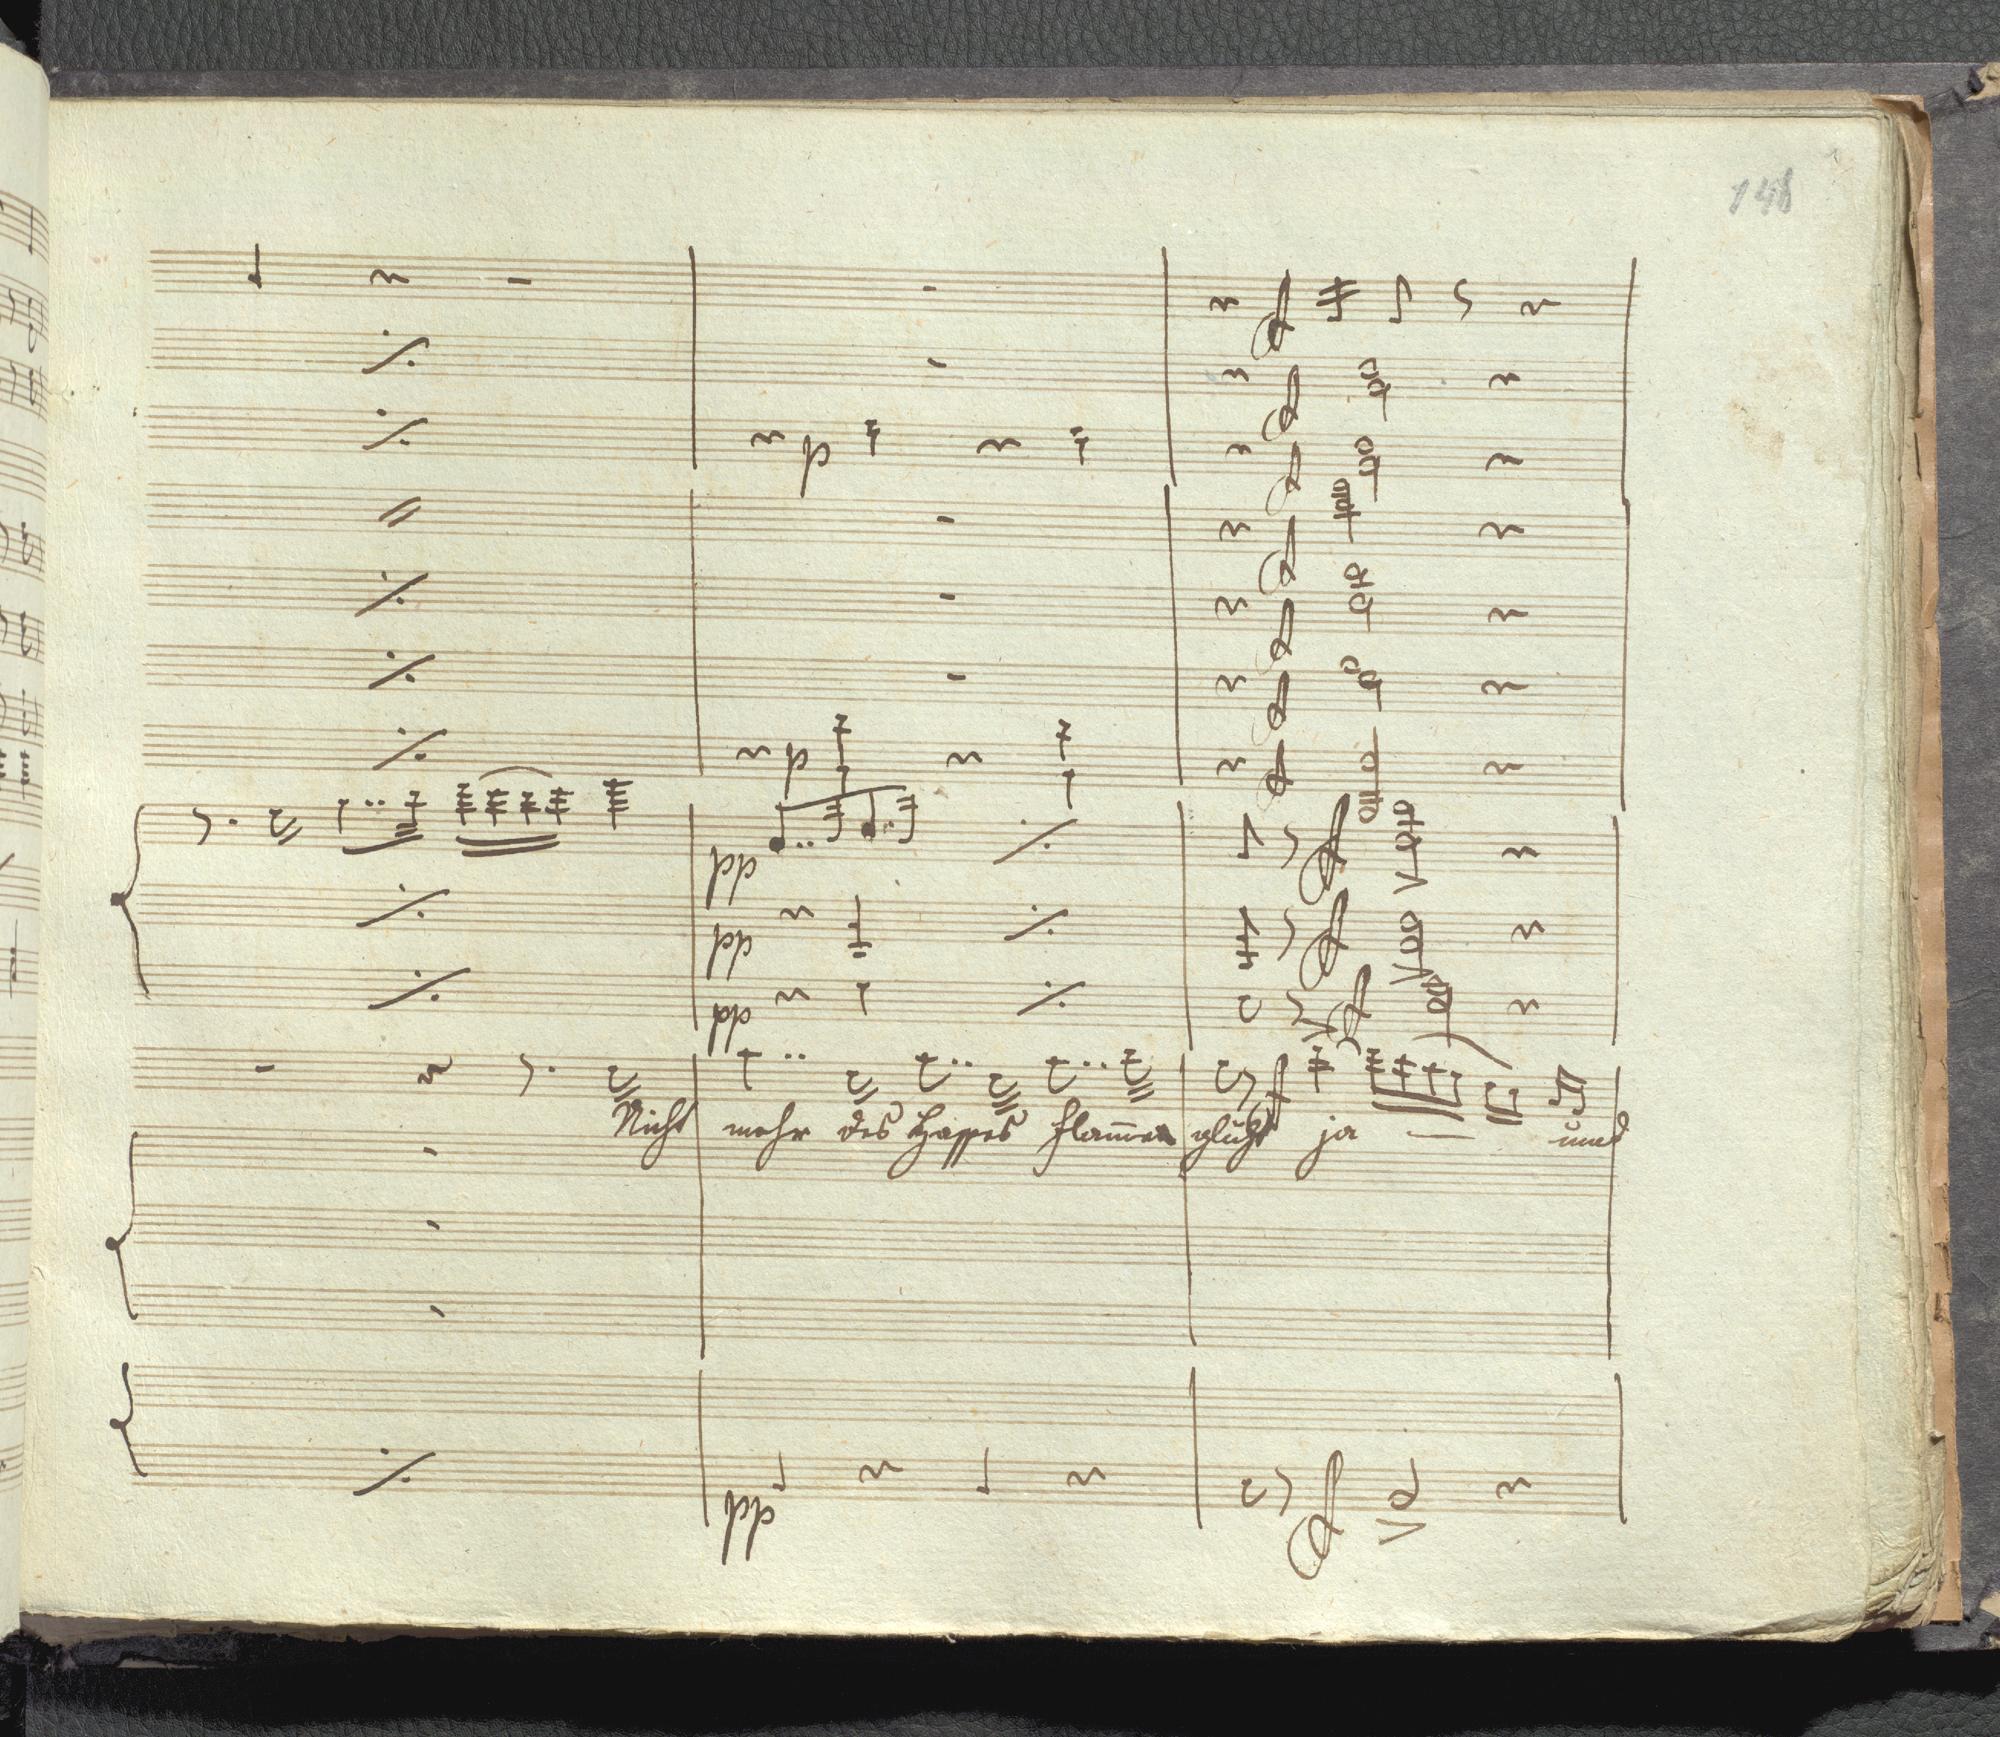 148
p
p
pp
pp
pp
Nicht mehr des Hasses flam̄en glüht ja — und
pp